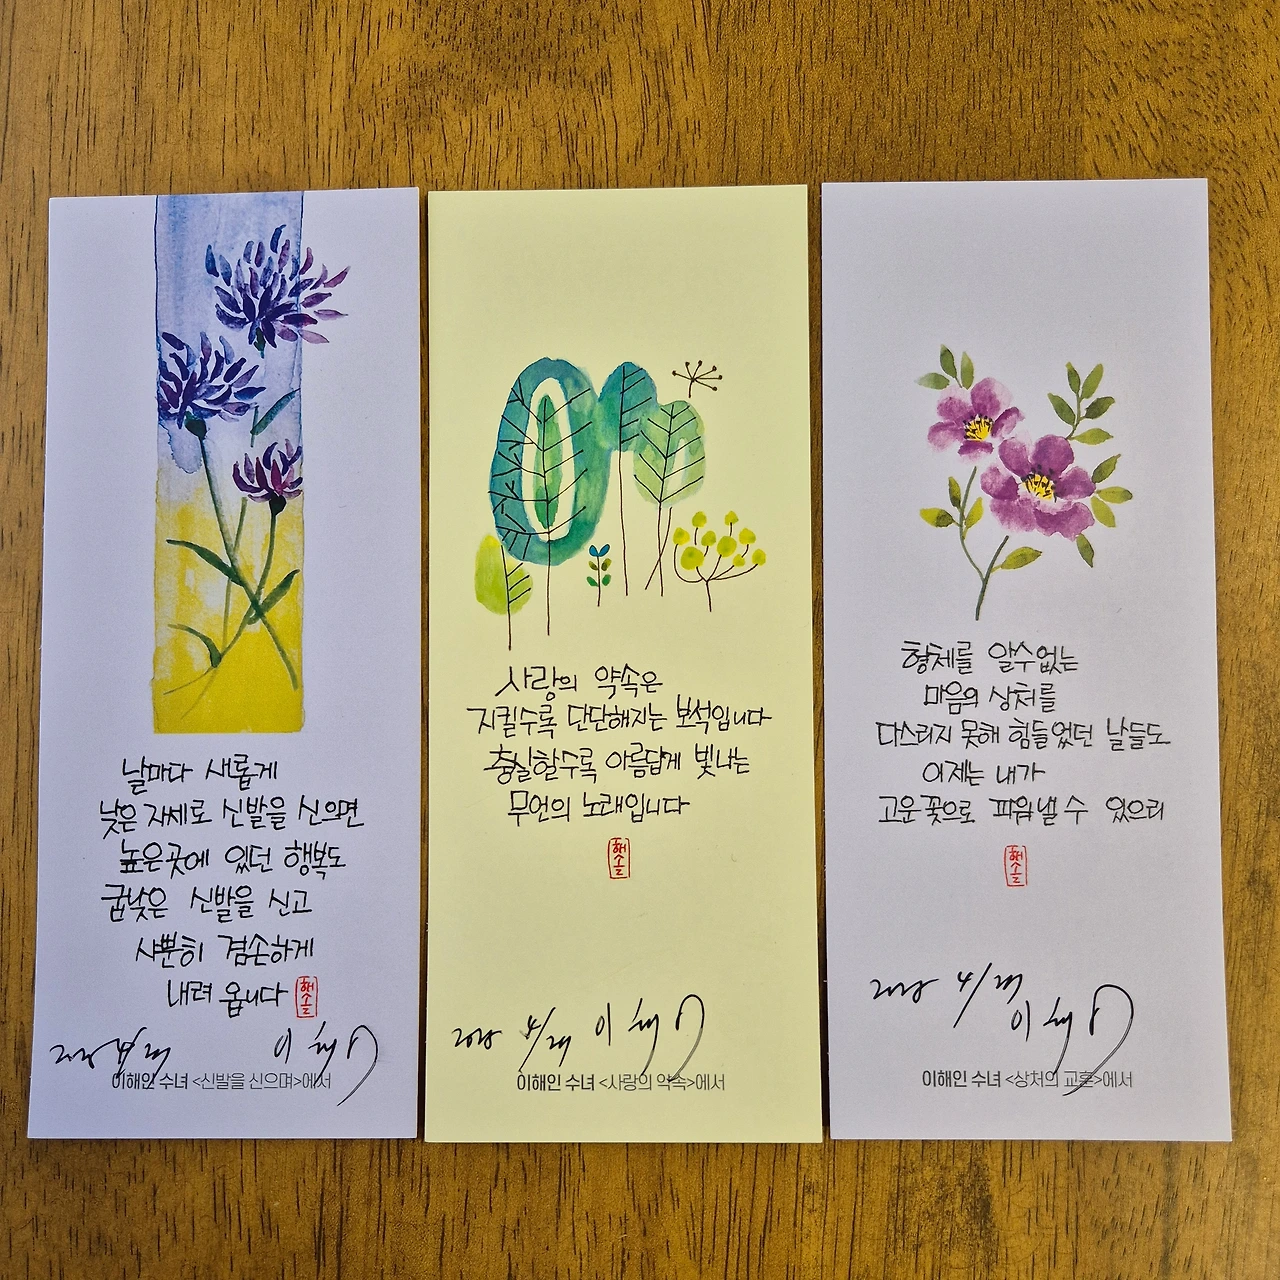 날마다 새롭게
낮은 자세로 신발을 신으면
높은곳에 있던 행복도
굽낮은 신발을 신고
사뿐히 겸손하게
내려 옵니다
해솔
4/29
이해인
이해인 수녀 <신발을 신으며>에서
사랑의 약속은
지킬수록 단단해지는 보석입니다
충실할수록 아름답게 빛나는
무언의 노래입니다
해솔
4/29 이해인
이해인 수녀 <사랑의 약속>에서
형체를 알수없는
마음의 상처를
다스리지 못해 힘들었던 날들도
이제는 내가
고운 꽃으로 피워낼 수 있으리
해솔
4/29
이해인
이해인 수녀 <상처의 교훈>에서